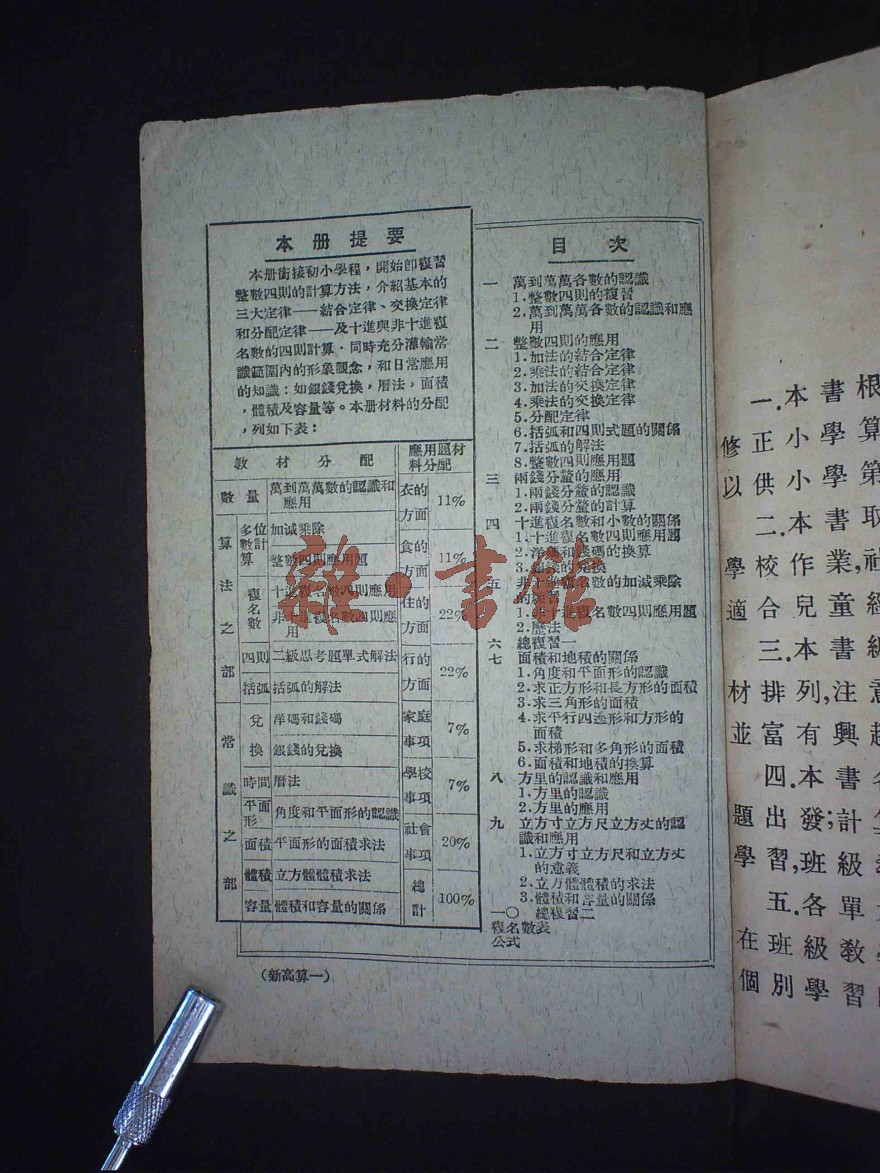 本册提要
本册銜接初小學程，開始即複習
整數四則的計算方法，介紹基本的
三大定律——結合定律、交換定律
和分配定律——及十進與非十進複
名數的四則計算．同時充分灌輸常
識範圍內的形象觀念，和日常應用
的知識：如銀錢兌換，曆法，面積
，體積及容量等。本册材料的分配
，列如下表：
教材分配
應用題材料分配
數量 萬到萬萬數的認識和應用
衣的方面 11%
算法之部
多位數計算 加減乘除
整數四則應用題
食的方面 11%
複名數 十進複名數四則應用
非十進複名數四則應用
住的方面 22%
四則 二級思考題單式解法
括弧 括弧的解法
行的方面 22%
常識之部
兌換 洋碼和錢碼
銀錢的兌換
家庭事項 7%
時間 曆法
平面形 角度和平面形的認識
學校事項 7%
面積 平面形的面積求法
社會事項 20%
體積 立方體體積求法
容量 體積和容量的關係
總計 100%
（新高算一）
目次
一 萬到萬萬各數的認識
1.整數四則的複習
2.萬到萬萬各數的認識和應
用
二 整數四則的應用
1.加法的結合定律
2.乘法的結合定律
3.加法的交換定律
4.乘法的交換定律
5.分配定律
6.括弧和四則式題的關係
7.括弧的解法
8.整數四則應用題
三 兩錢分釐的應用
1.兩錢分釐的認識
2.兩錢分釐的計算
四 十進複名數和小數的關係
1.十進複名數的應用
2.洋碼和錢碼的換算
3.銀錢的兌換
五 非十進複名數的加減乘除
的複習
1.非十進複名數四則應用題
2.曆法
六 總複習一
七 面積和地積的關係
1.角度和平面形的認識
2.求正方形和長方形的面積
3.求三角形的面積
4.求平行四邊形和方形的
面積
5.求梯形和多角形的面積
6.面積和地積的換算
八 方里的認識和應用
1.方里的認識
2.方里的應用
九 立方寸立方尺立方丈的認
識和應用
1.立方寸立方尺和立方丈
的意義
2.立方體體積的求法
3.體積和容量的關係
一〇 總複習二
複名數表
公式
雜·書館
一.本書根
修正小學算
以供小學第
二.本書取
學校作業,社
適合兒童經
三.本書級
材排列,注意
並富有興趣
四.本書名
題出發;計算
學習,班級
五.各單
在班級教學
個別學習